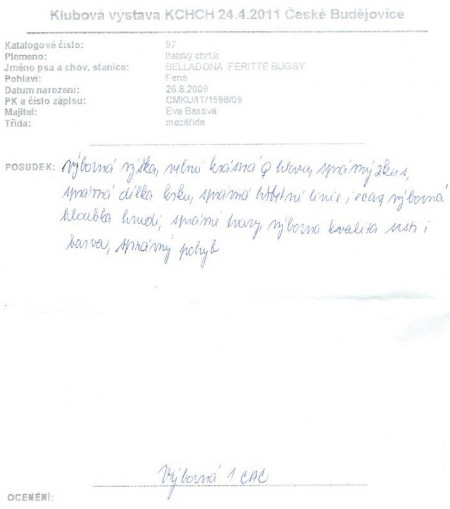 Klubová výstava KCHCH 24.4.2011 České Budějovice
Katalogové číslo: 97
Plemeno: Italský chrtík
Jméno psa a chov. stanice: BELLADONA FERITTE BUGSY
Pohlaví: Fena
Datum narození: 26.8.2009
PK a číslo zápisu: CMKU/IT/1598/09
Majitel: Eva Basová
Třída: mezitřída
POSUDEK: Výborná výška, velmi krásná ♀ hlava, správný skus,
správná délka krku, správná hřbetní linie i ocas, výborná
hloubka hrudi, správné tvary, výborná kvalita srsti i
barva, správný pohyb
Výborná 1 CAC
OCENĚNÍ: